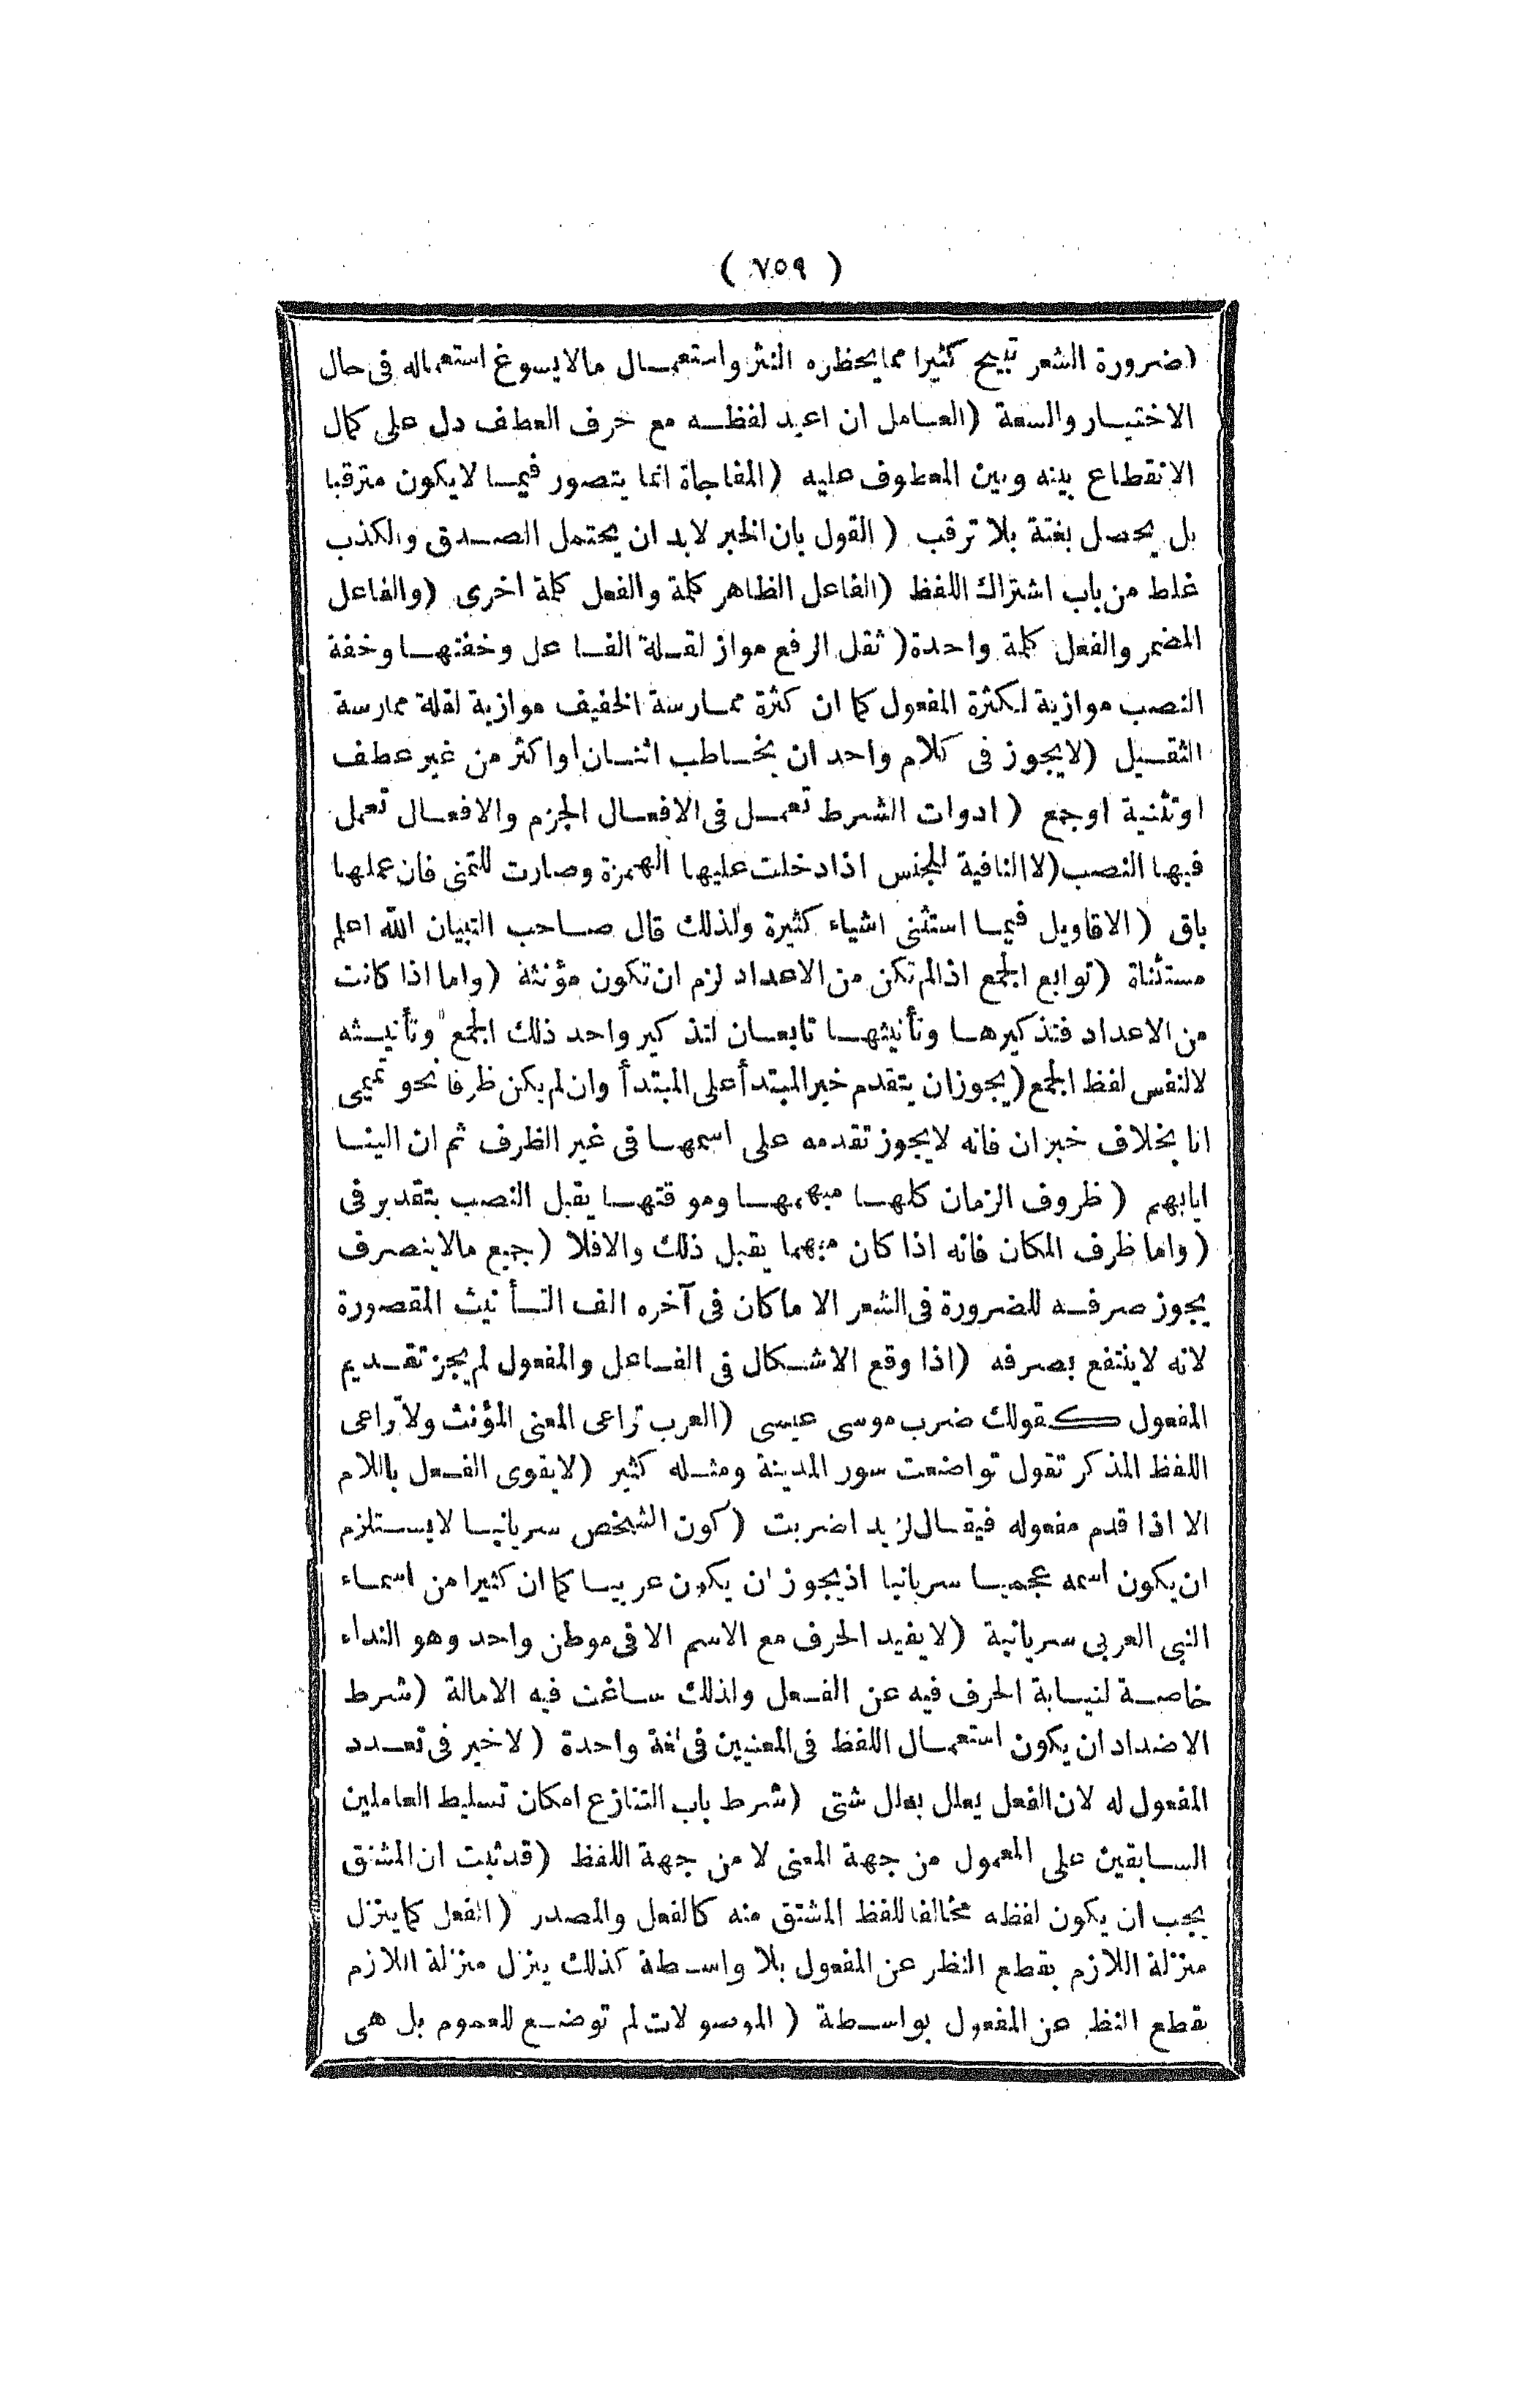 ( ٧٥٩ )
(ضرورة الشعر تبيح كثيرا مما يحظره النثر واستعمال مالا يسوغ استعماله فى حال
الاختيار والسعة (العامل ان اعيد لفظه مع حرف العطف دل على كمال
الانقطاع بينه وبين المعطوف عليه (المفاجاة انما يتصور فيما لايكون مترقبا
بل يحصل بغتة بلا ترقب (القول بان الخبر لابد ان يحتمل الصدق والكذب
غلط من باب اشتراك اللفظ (الفاعل الظاهر كلمة والفعل كلمة اخرى (والفاعل
المضمر والفعل كلمة واحدة( ثقل الرفع مواز لقلة الفاعل وخفتها وخفة
النصب موازية لكثرة المفعول كما ان كثرة ممارسة الخفيف موازية لقلة ممارسة
الثقيل (لايجوز فى كلام واحد ان يخاطب اثنان او اكثر من غير عطف
او تثنية او جمع (ادوات الشرط تعمل فى الافعال الجزم والافعال تعمل
فيها النصب(لا النافية للجنس اذا دخلت عليها الهمزة وصارت للتمنى فان عملها
باق (الاقاويل فيما استثنى اشياء كثيرة ولذلك قال صاحب التبيان الله اعلم
مستثناة (توابع الجمع اذا لم تكن من الاعداد لزم ان تكون مؤنثة (واما اذا كانت
من الاعداد فتذكيرها وتأنيثها تابعان لتذكير واحد ذلك الجمع وتأنيثه
لالنفس لفظ الجمع (يجوز ان يتقدم خبر المبتدأ على المبتدأ وان لم يكن ظرفا نحو تميمى
انا بخلاف خبر ان فانه لايجوز تقدمه على اسمها فى غير الظرف ثم ان الينا
ايابهم (ظروف الزمان كلها مبهمها وموقتها يقبل النصب بتقدير فى
(واما ظرف المكان فانه اذا كان مبهما يقبل ذلك والافلا (جميع مالاينصرف
يجوز صرفه للضرورة فى الشعر الا ماكان فى آخره الف التأنيث المقصورة
لانه لاينتفع بصرفه (اذا وقع الاشكال فى الفاعل والمفعول لم يجز تقديم
المفعول كقولك ضرب موسى عيسى (العرب تراعى المعنى المؤنث ولا تراعى
اللفظ المذكر تقول تواضعت سور المدينة ومثله كثير (لايقوى الفعل باللام
الا اذا قدم مفعوله فيقال لزيد اضربت (كون الشخص سريانيا لايستلزم
ان يكون اسمه عجميا سريانيا اذ يجوز ان يكون عربيا كما ان كثيرا من اسماء
النبى العربى سريانية (لايفيد الحرف مع الاسم الا فى موطن واحد وهو النداء
خاصة لنيابة الحرف فيه عن الفعل ولذلك ساغت فيه الامالة (شرط
الاضداد ان يكون استعمال اللفظ فى المعنيين فى لغة واحدة (لاخير فى تعدد
المفعول له لان الفعل يعلل بعلل شتى (شرط باب التنازع امكان تسليط العاملين
السابقين على المعمول من جهة المعنى لا من جهة اللفظ (قد ثبت ان المشتق
يجب ان يكون لفظه مخالفا للفظ المشتق منه كالفعل والمصدر (الفعل كما ينزل
منزلة اللازم بقطع النظر عن المفعول بلا واسطة كذلك ينزل منزلة اللازم
بقطع النظر عن المفعول بواسطة (الموصولات لم توضع للعموم بل هى